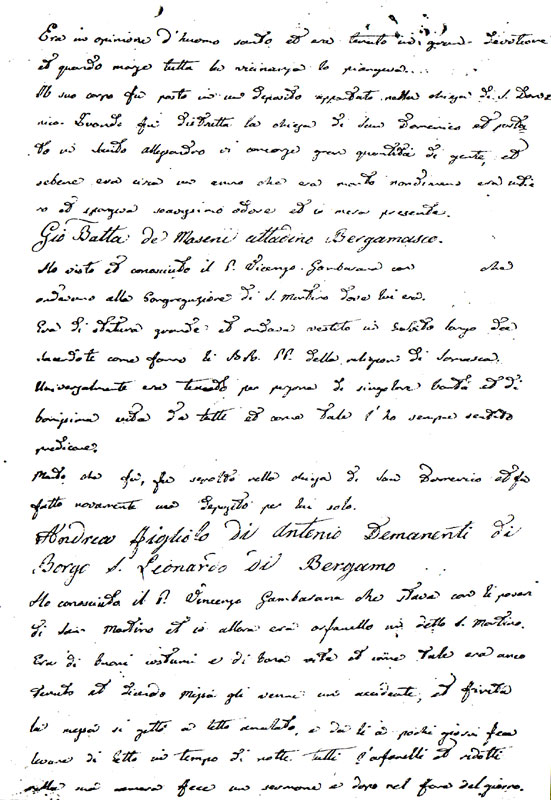 Era in opinione d'huomo santo et era tenuto in gran devotione
et quando morse tutta la vicinanza lo piangeva....
Il suo corpo fu posto in un deposito appartato nella chiesa di S. Dome
nico. Quando fu distrutta la chiesa di San Domenico et porta
to in Santo Allesandro vi concorse gran quantità di gente, et
sebene era circa un anno che era morto nondimeno era intie
ro et spargeva soavissimo odore et io mera presente.
Gio Batta de Maseni cittadino Bergamasco.
Ho visto et conosciuto il P. Vicenzo Gambarana con che
andavano alla Congregazione di S. Martino dove lui era.
Era di statura grande et andava vestito in habito longo da
sacerdote come fanno li RR. PP. della religion di Somasca.
Universalmente era tenuto per persona di singolar bontà et di
bonissima vita da tutti et come tale l'ho sempre sentito
predicare.
Morto che fu, fu sepolto nella chiesa di San Domenico et fu
fatto novamente un deposito per lui solo.
Andrea figliolo di Antonio Demanenti di
Borgo S. Leonardo di Bergamo
Ho conosciuto il P. Vincenzo Gambarana che stava con li poveri
di San Martino et io allora era orfanello in detto S. Martino.
Era di buoni costumi e di bona vita et come tale era anco
tenuto et dicendo Messa gli venne un accidente, et finita
la messa si gettò a letto amalato, e da li a pochi giorni fece
levare di letto in tempo di notte tutti l'orfanelli et ridotti
nella sua camera fece un sermone e dopo nel fare del giorno.